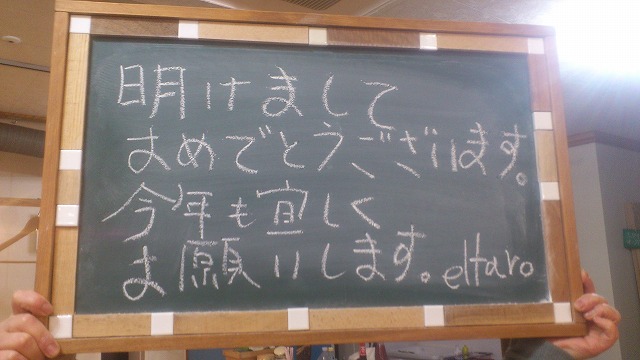 明けまして
おめでとうございます。
今年も宜しく
お願いします。eltaro